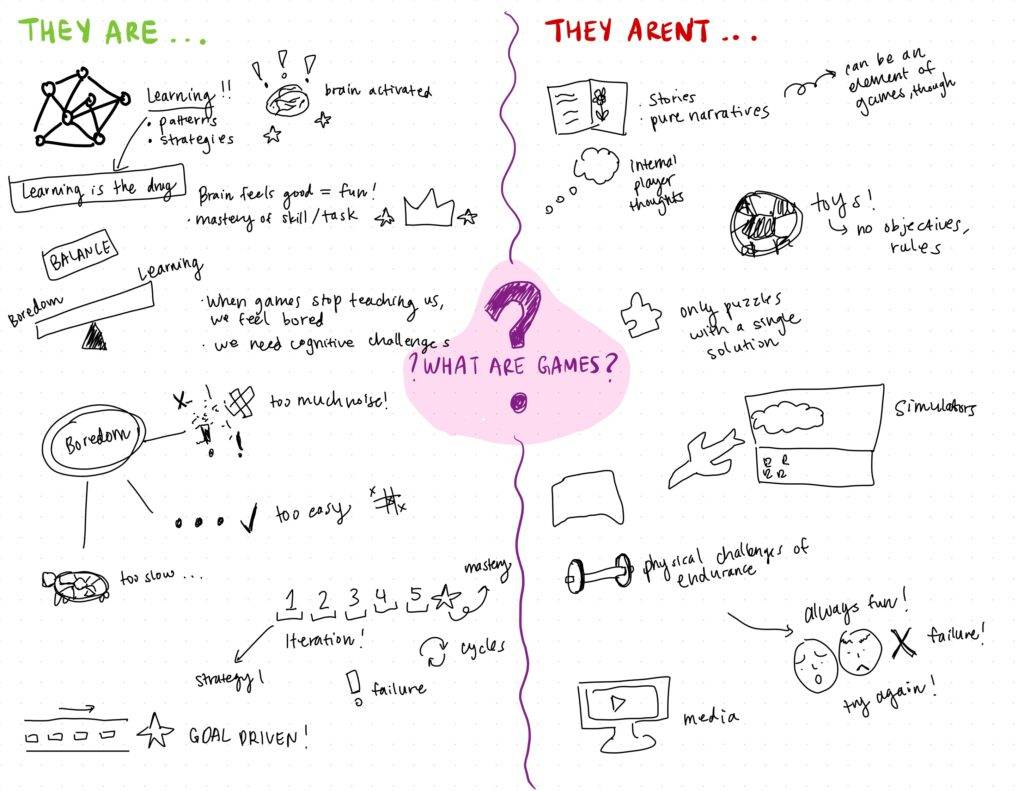 THEY ARE ...
Learning !!
• patterns
• strategies
brain activated
Learning is the drug
Brain feels good = fun!
• mastery of skill/task
BALANCE
Boredom
Learning
• When games stop teaching us,
we feel bored
• we need cognitive challenges
Boredom
too much noise!
too easy
too slow ...
1 2 3 4 5
mastery
Iteration!
cycles
strategy 1
failure
GOAL DRIVEN!
?
?WHAT ARE GAMES?
THEY ARENT ...
• stories
• pure narratives
can be an
element of
games, though
internal
player
thoughts
toys!
no objectives,
rules
only puzzles
with a single
solution
Simulators
physical challenges of
endurance
always fun!
X failure!
try again!
media